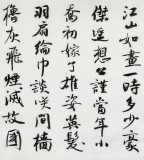 江山如畫一時多少豪
傑遥想公謹當年小
喬初嫁了雄姿英髮
羽扇綸巾談笑间檣
橹灰飛煙滅故國